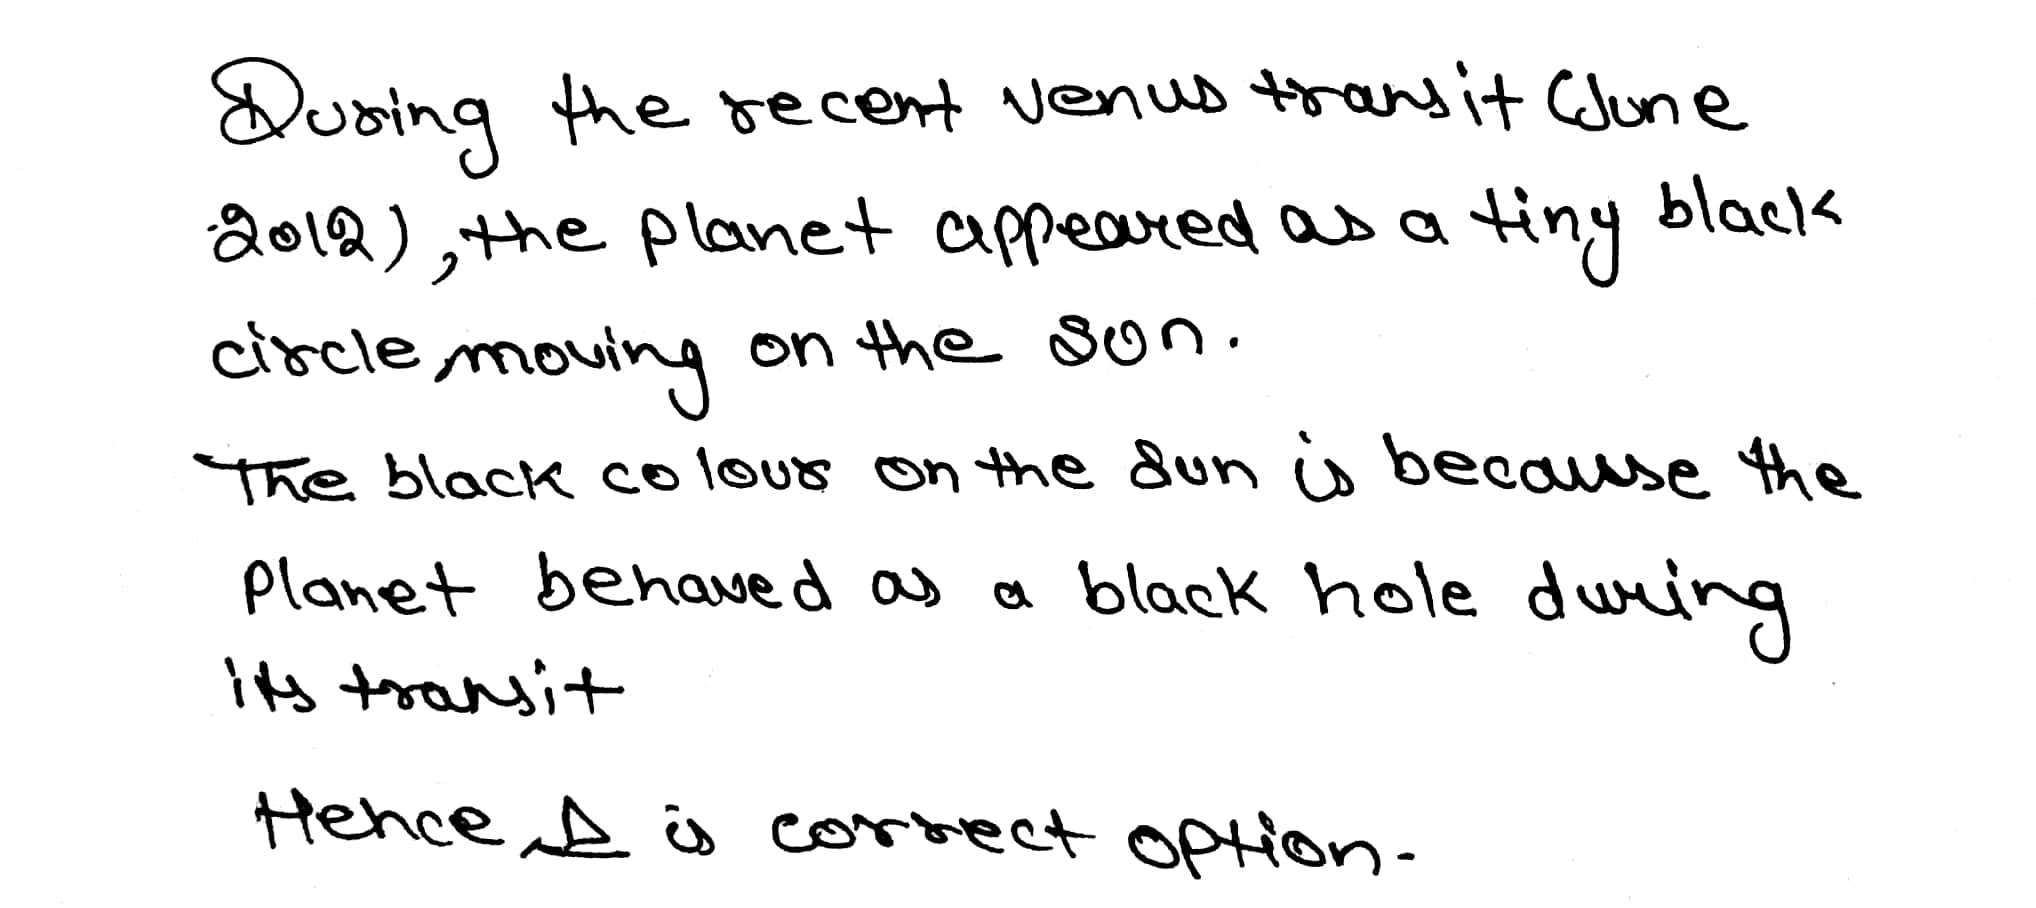 During the recent Venus transit (June
2012), the planet appeared as a tiny black
circle moving on the Sun.
The black colour on the Sun is because the
Planet behaved as a black hole during
its transit
Hence is correct option.